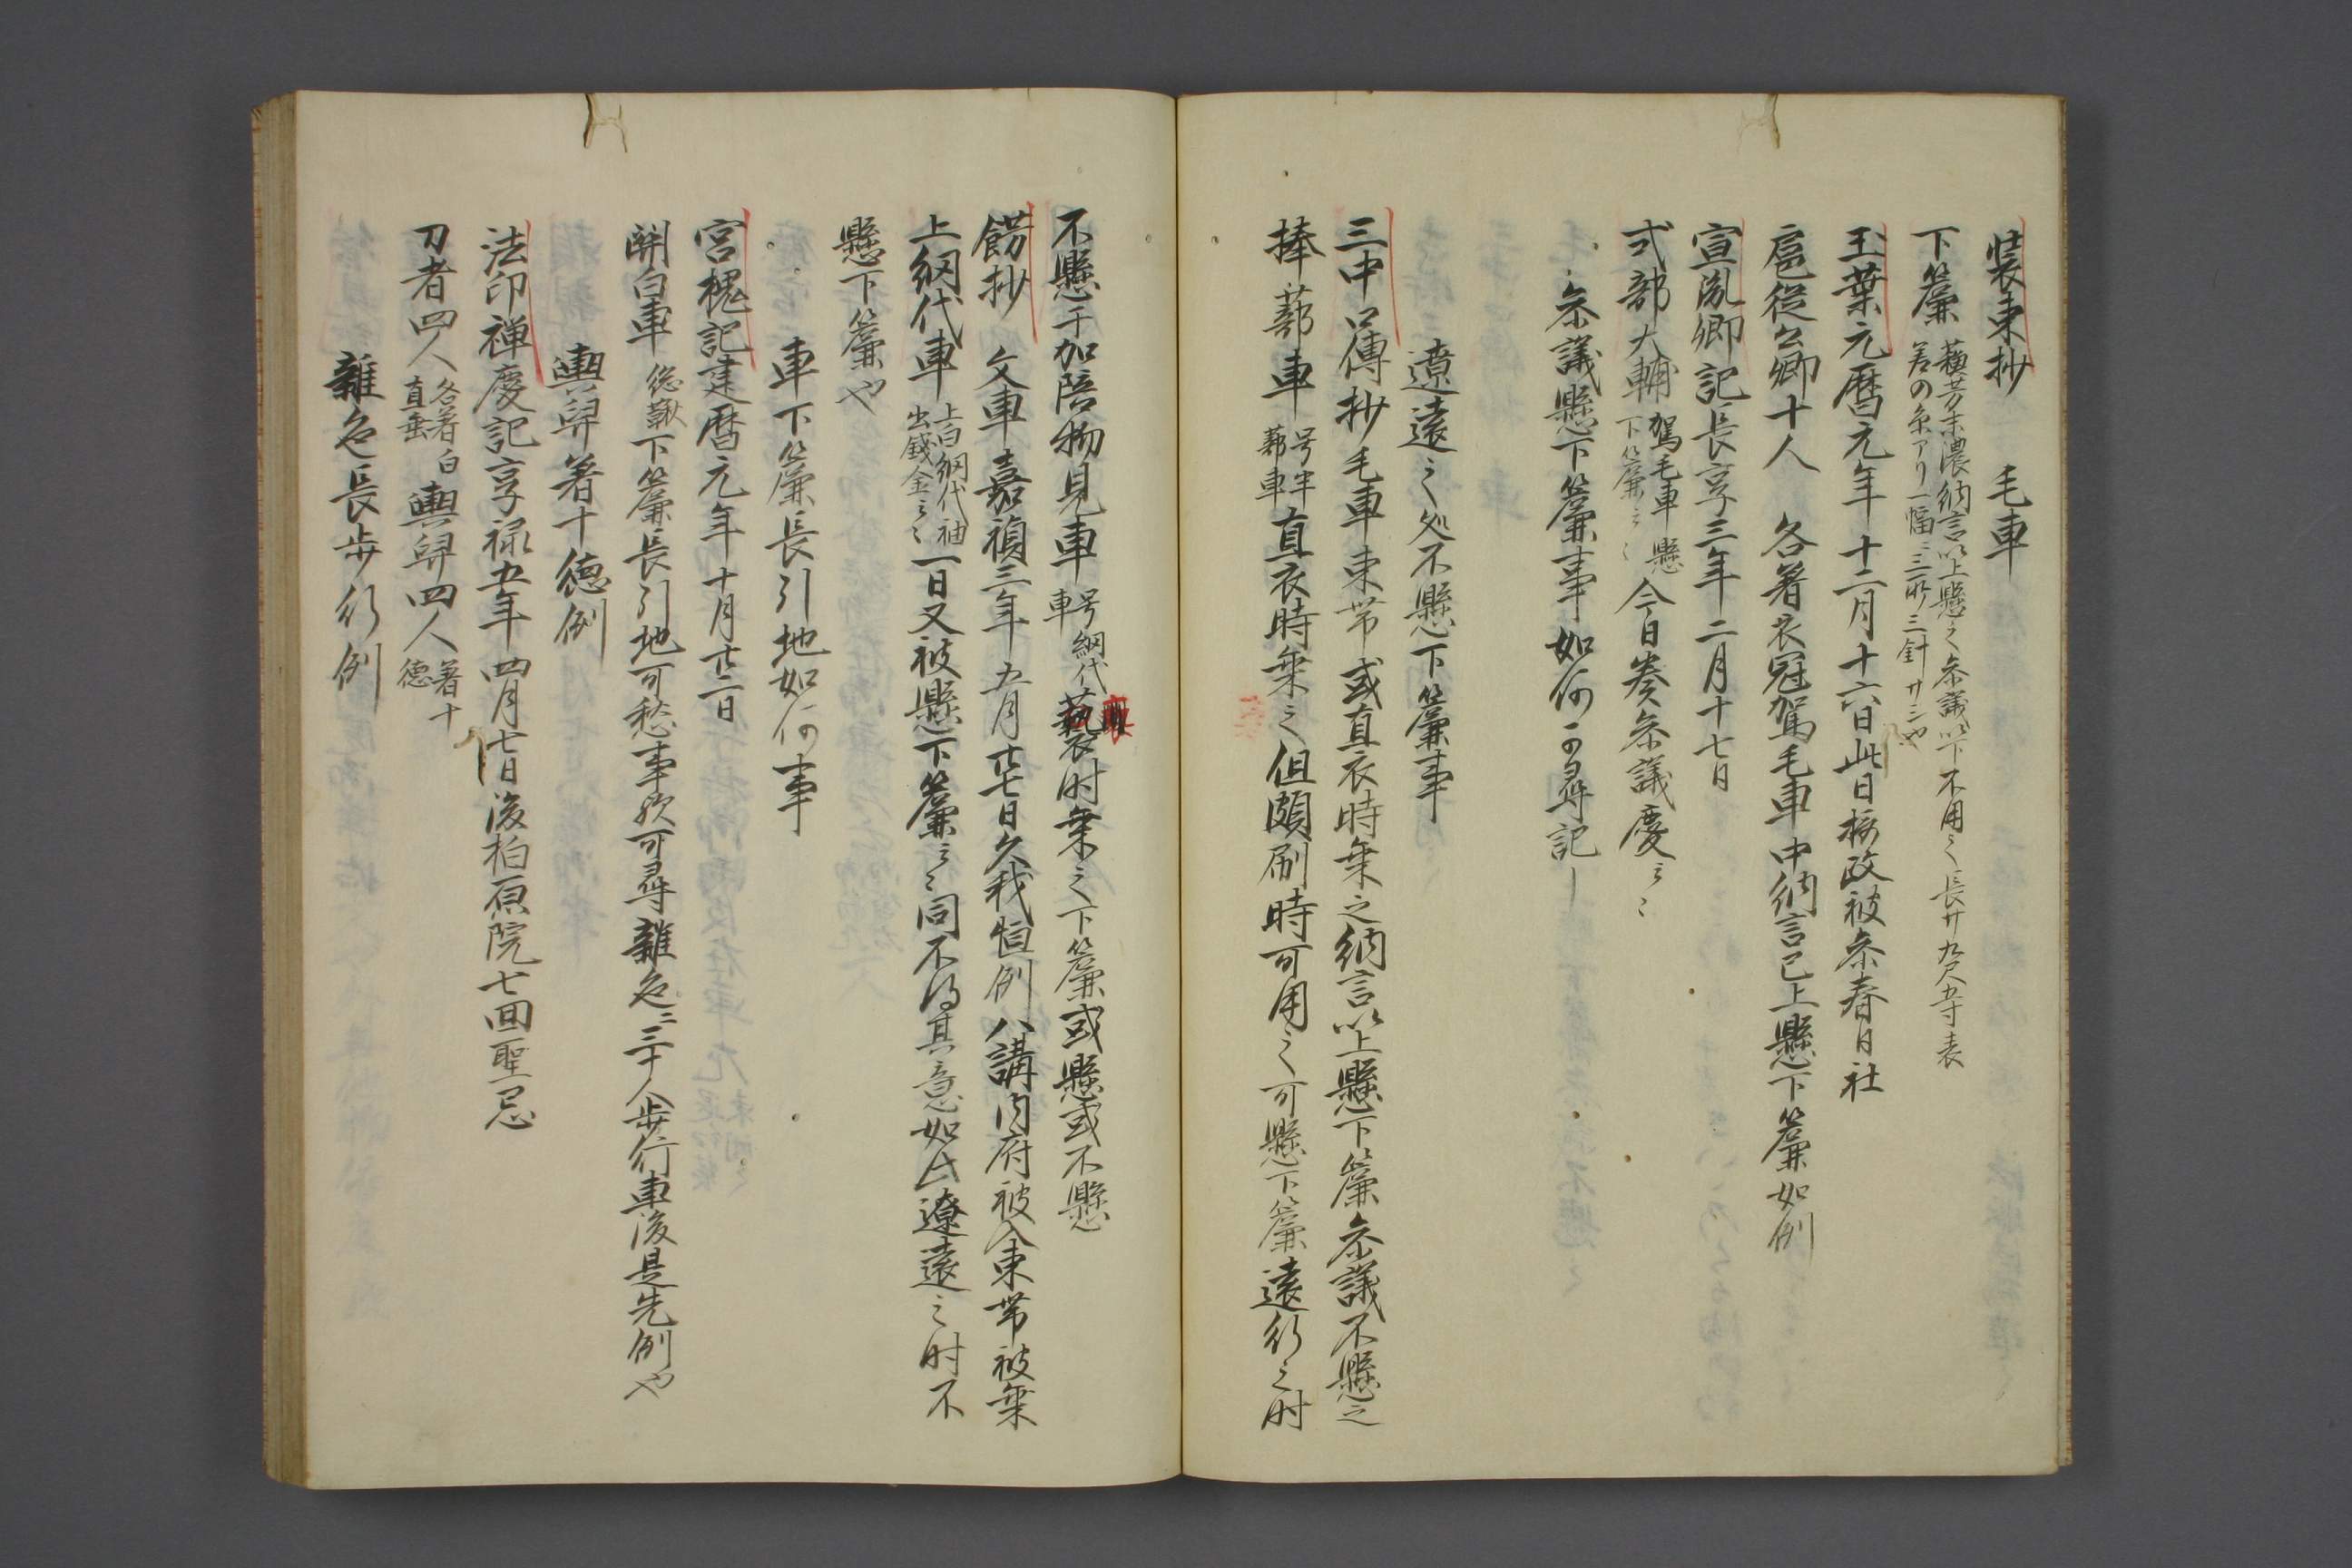 装束抄　毛車
下簾　蘇芳末濃納言以上懸之参議以下不用之長廿九尺五寸表
差の糸アリ一幅ニ三所三針廿三也
玉葉元暦元年十二月十六日此日摂政被参春日社
扈従公卿十人　各著衣冠駕毛車中納言已上懸下簾如例
宣胤卿記長享三年二月十七日
式部大輔駕毛車懸下簾云々今日奏参議慶云々
参議懸下簾事如何可尋記
遼遠之処不懸下簾事
三中口傳抄毛車束帯或直衣時乗之納言以上懸下簾参議不懸之
捧蔀車号半蔀車直衣時乗之但頗刷時可用之可懸下簾遠行之時
不懸于加陪物見車号網代車褻時乗之下簾或懸或不懸
餝抄　文車嘉禎三年五月廿七日久我恒例八講内府被入束帯被乗
上網代車上白網代袖出錢金云々一日又被懸下簾云々同不得其意如此遼遠之時不
懸下簾也
車下簾長引地如何事
宮槐記建暦元年十月廿二日
関白車　下簾長引地可愁事欤可尋雑色二三十人歩行車後是先例也
輿舁著十徳例
法印禅慶記享禄五年四月七日後柏原院七回聖忌
刀者四人各著白直垂輿舁四人著十徳
雑色長歩行例